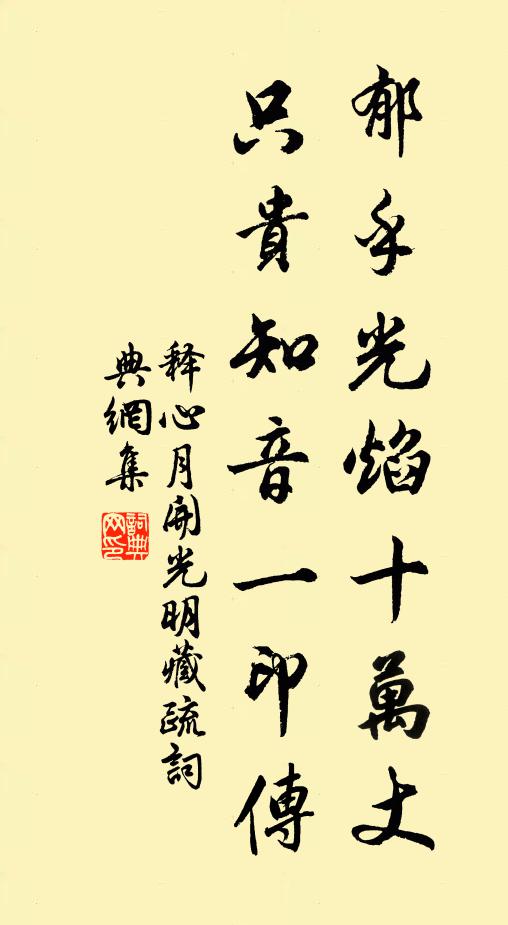 郁乎光焰十萬丈
只貴知音一印傳
释心月開光明藏疏詞
典網集
詞典
网印